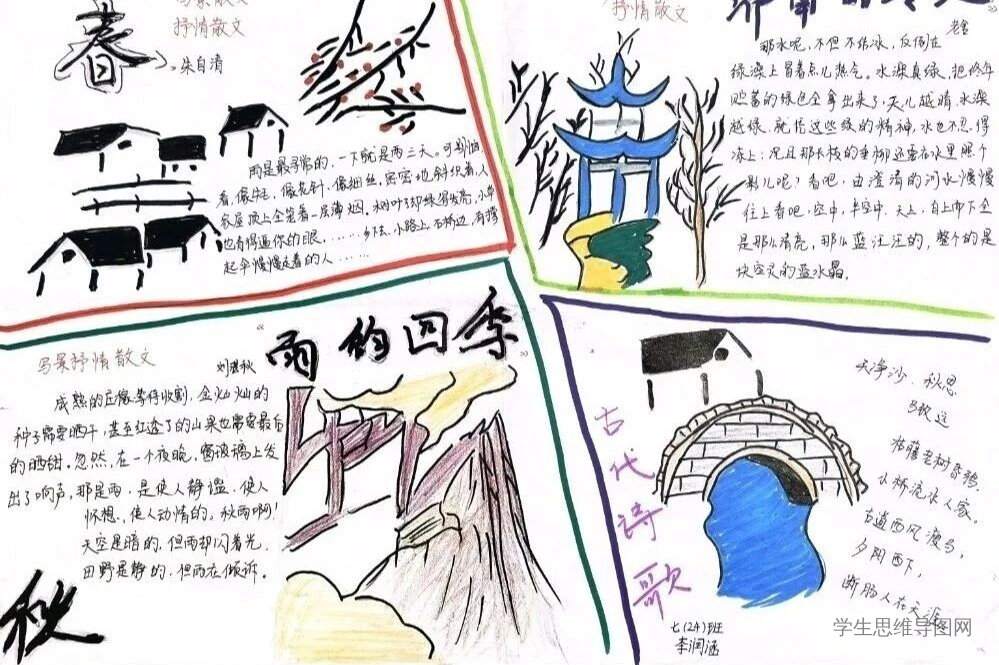 春
写景散文
抒情散文
朱自清
雨是最寻常的，一下就是两三天。可别恼
看，像牛毛，像花针，像细丝，密密地斜织着，人
家屋顶上全笼着一层薄烟。树叶子却绿得发亮，小草
也青得逼你的眼，……乡下去，小路上，石桥边，有撑
起伞慢慢走着的人……
抒情散文
济南的冬天
老舍
那水呢，不但不结冰，反倒在
绿藻上冒着点儿热气。水藻真绿，把终年
贮蓄的绿色全拿出来了。天儿越晴，水藻
越绿，就凭这些绿的精神，水也不忍得
冻上；况且那长枝的垂柳还要在水里照个
影儿呢？看吧，由澄清的河水慢慢
往上看吧，空中，半空中，天上，自上而下全
是那么清亮，那么蓝汪汪的，整个的是
块空灵的蓝水晶。
“雨的四季”
写景抒情散文
刘湛秋
成熟的庄稼等待收割，金灿灿的
种子需要晒干，甚至红透了的山果也需要最后
的晒甜。忽然，在一个夜晚，窗玻璃上发
出了响声，那是雨，是使人静谧，使人
怀想，使人动情的，秋雨啊！
天空是暗的，但雨却闪着光，
田野是静的，但雨在倾诉。
秋
古代诗歌
天净沙·秋思
马致远
枯藤老树昏鸦，
小桥流水人家。
古道西风瘦马，
夕阳西下，
断肠人在天涯。
七（24）班
李润涵
学生思维导图网